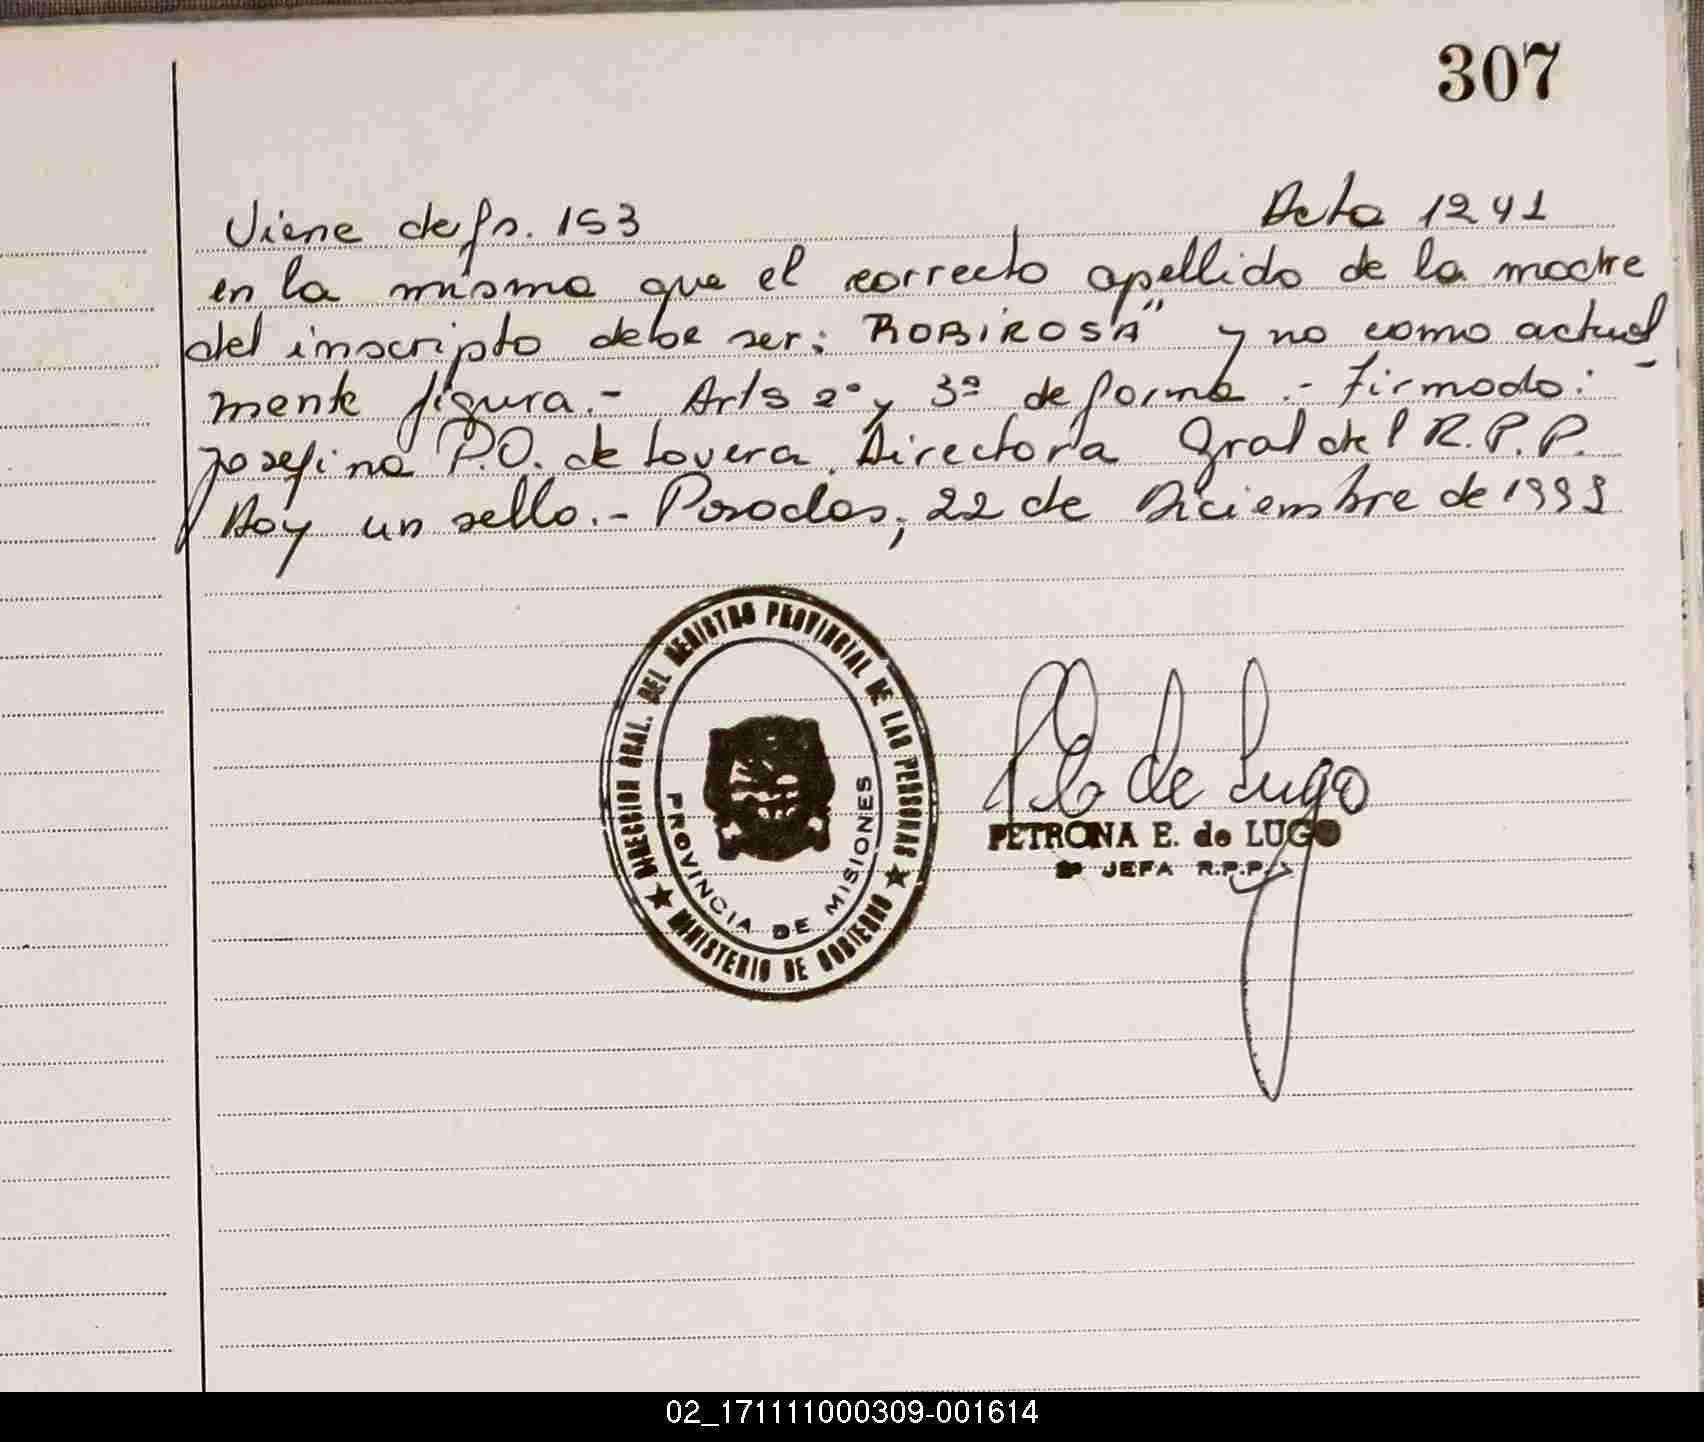 307
Viene de fs. 153 Acta 1241
en la misma que el correcto apellido de la madre
del inscripto debe ser: "ROBIROSA" y no como actual
mente figura.- Arts 2º y 3º de forma.- Firmado:
Josefina P.O. de Lovera. Directora Gral del R.P.P.
Hay un sello.- Posadas, 22 de Diciembre de 1999
DIRECCION GRAL. DEL REGISTRO PROVINCIAL DE LAS PERSONAS
PROVINCIA DE MISIONES
★ MINISTERIO DE GOBIERNO ★
de Lugo
PETRONA E. de LUGO
JEFA R.P.P.
02_171111000309-001614